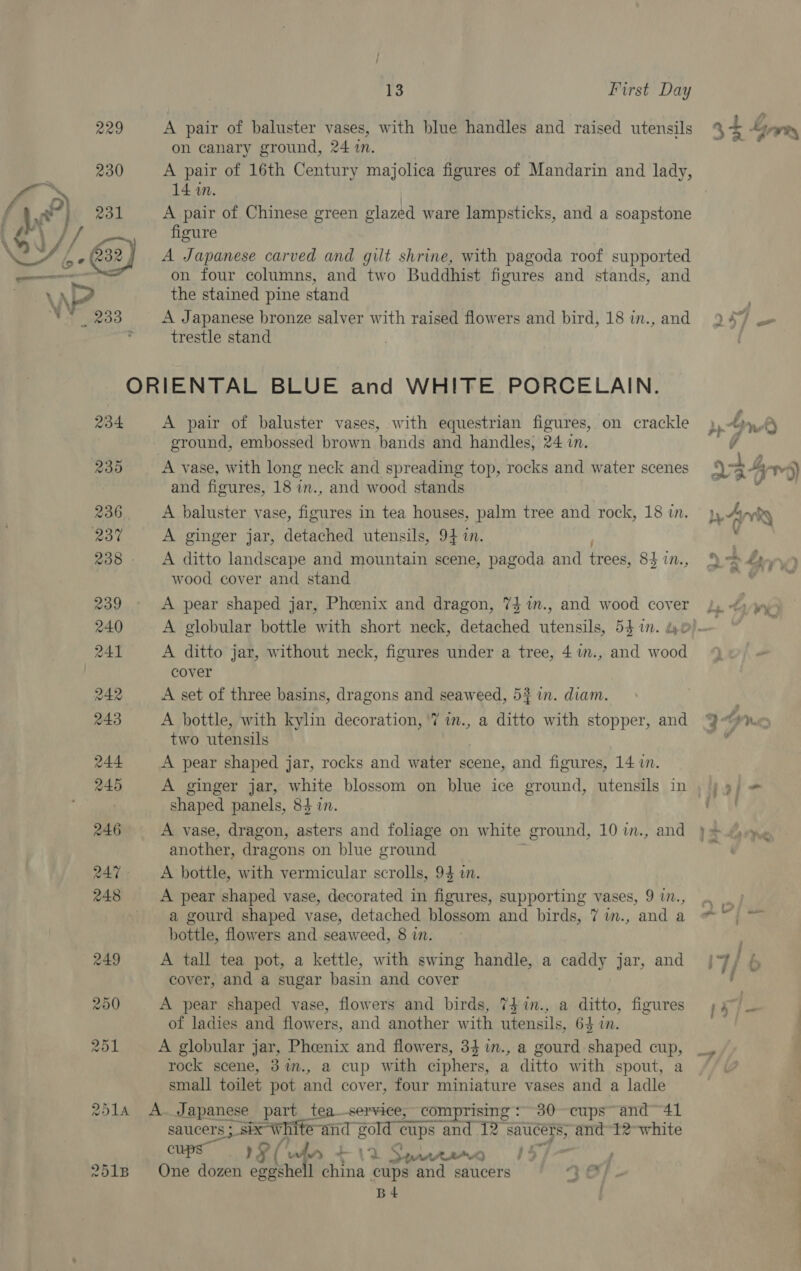 13 First Day
229 A pair of baluster vases, with blue handles and raised utensils
on canary ground, 24 in.
230 A pair of 16th Century majolica figures of Mandarin and lady,
14 in.
231 A pair of Chinese green glazed ware lampsticks, and a soapstone
figure
232 A Japanese carved and gilt shrine, with pagoda roof supported
on four columns, and two Buddhist figures and stands, and
the stained pine stand
233 A Japanese bronze salver with raised flowers and bird, 18 in., and
trestle stand
ORIENTAL BLUE and WHITE PORCELAIN.
234 A pair of baluster vases, with equestrian figures, on crackle
ground, embossed brown bands and handles, 24 in.
235 A vase, with long neck and spreading top, rocks and water scenes
and figures, 18 in., and wood stands
236 A baluster vase, figures in tea houses, palm tree and rock, 18 in.
237 A ginger jar, detached utensils, 9½ in.
238 A ditto landscape and mountain scene, pagoda and trees, 8½ in.,
wood cover and stand
239 A pear shaped jar, Phœnix and dragon, 7½ in., and wood cover
240 A globular bottle with short neck, detached utensils, 5½ in.
241 A ditto jar, without neck, figures under a tree, 4 in., and wood
cover
242 A set of three basins, dragons and seaweed, 5¾ in. diam.
243 A bottle, with kylin decoration, 7 in., a ditto with stopper, and
two utensils
244 A pear shaped jar, rocks and water scene, and figures, 14 in.
245 A ginger jar, white blossom on blue ice ground, utensils in
shaped panels, 8½ in.
246 A vase, dragon, asters and foliage on white ground, 10 in., and
another, dragons on blue ground
247 A bottle, with vermicular scrolls, 9½ in.
248 A pear shaped vase, decorated in figures, supporting vases, 9 in.,
a gourd shaped vase, detached blossom and birds, 7 in., and a
bottle, flowers and seaweed, 8 in.
249 A tall tea pot, a kettle, with swing handle, a caddy jar, and
cover, and a sugar basin and cover
250 A pear shaped vase, flowers and birds, 7½ in., a ditto, figures
of ladies and flowers, and another with utensils, 6½ in.
251 A globular jar, Phœnix and flowers, 3½ in., a gourd shaped cup,
rock scene, 3 in., a cup with ciphers, a ditto with spout, a
small toilet pot and cover, four miniature vases and a ladle
251A A Japanese part tea service, comprising: 30 cups and 41
saucers; six white and gold cups and 12 saucers, and 12 white
cups
251B One dozen eggshell china cups and saucers
B 4